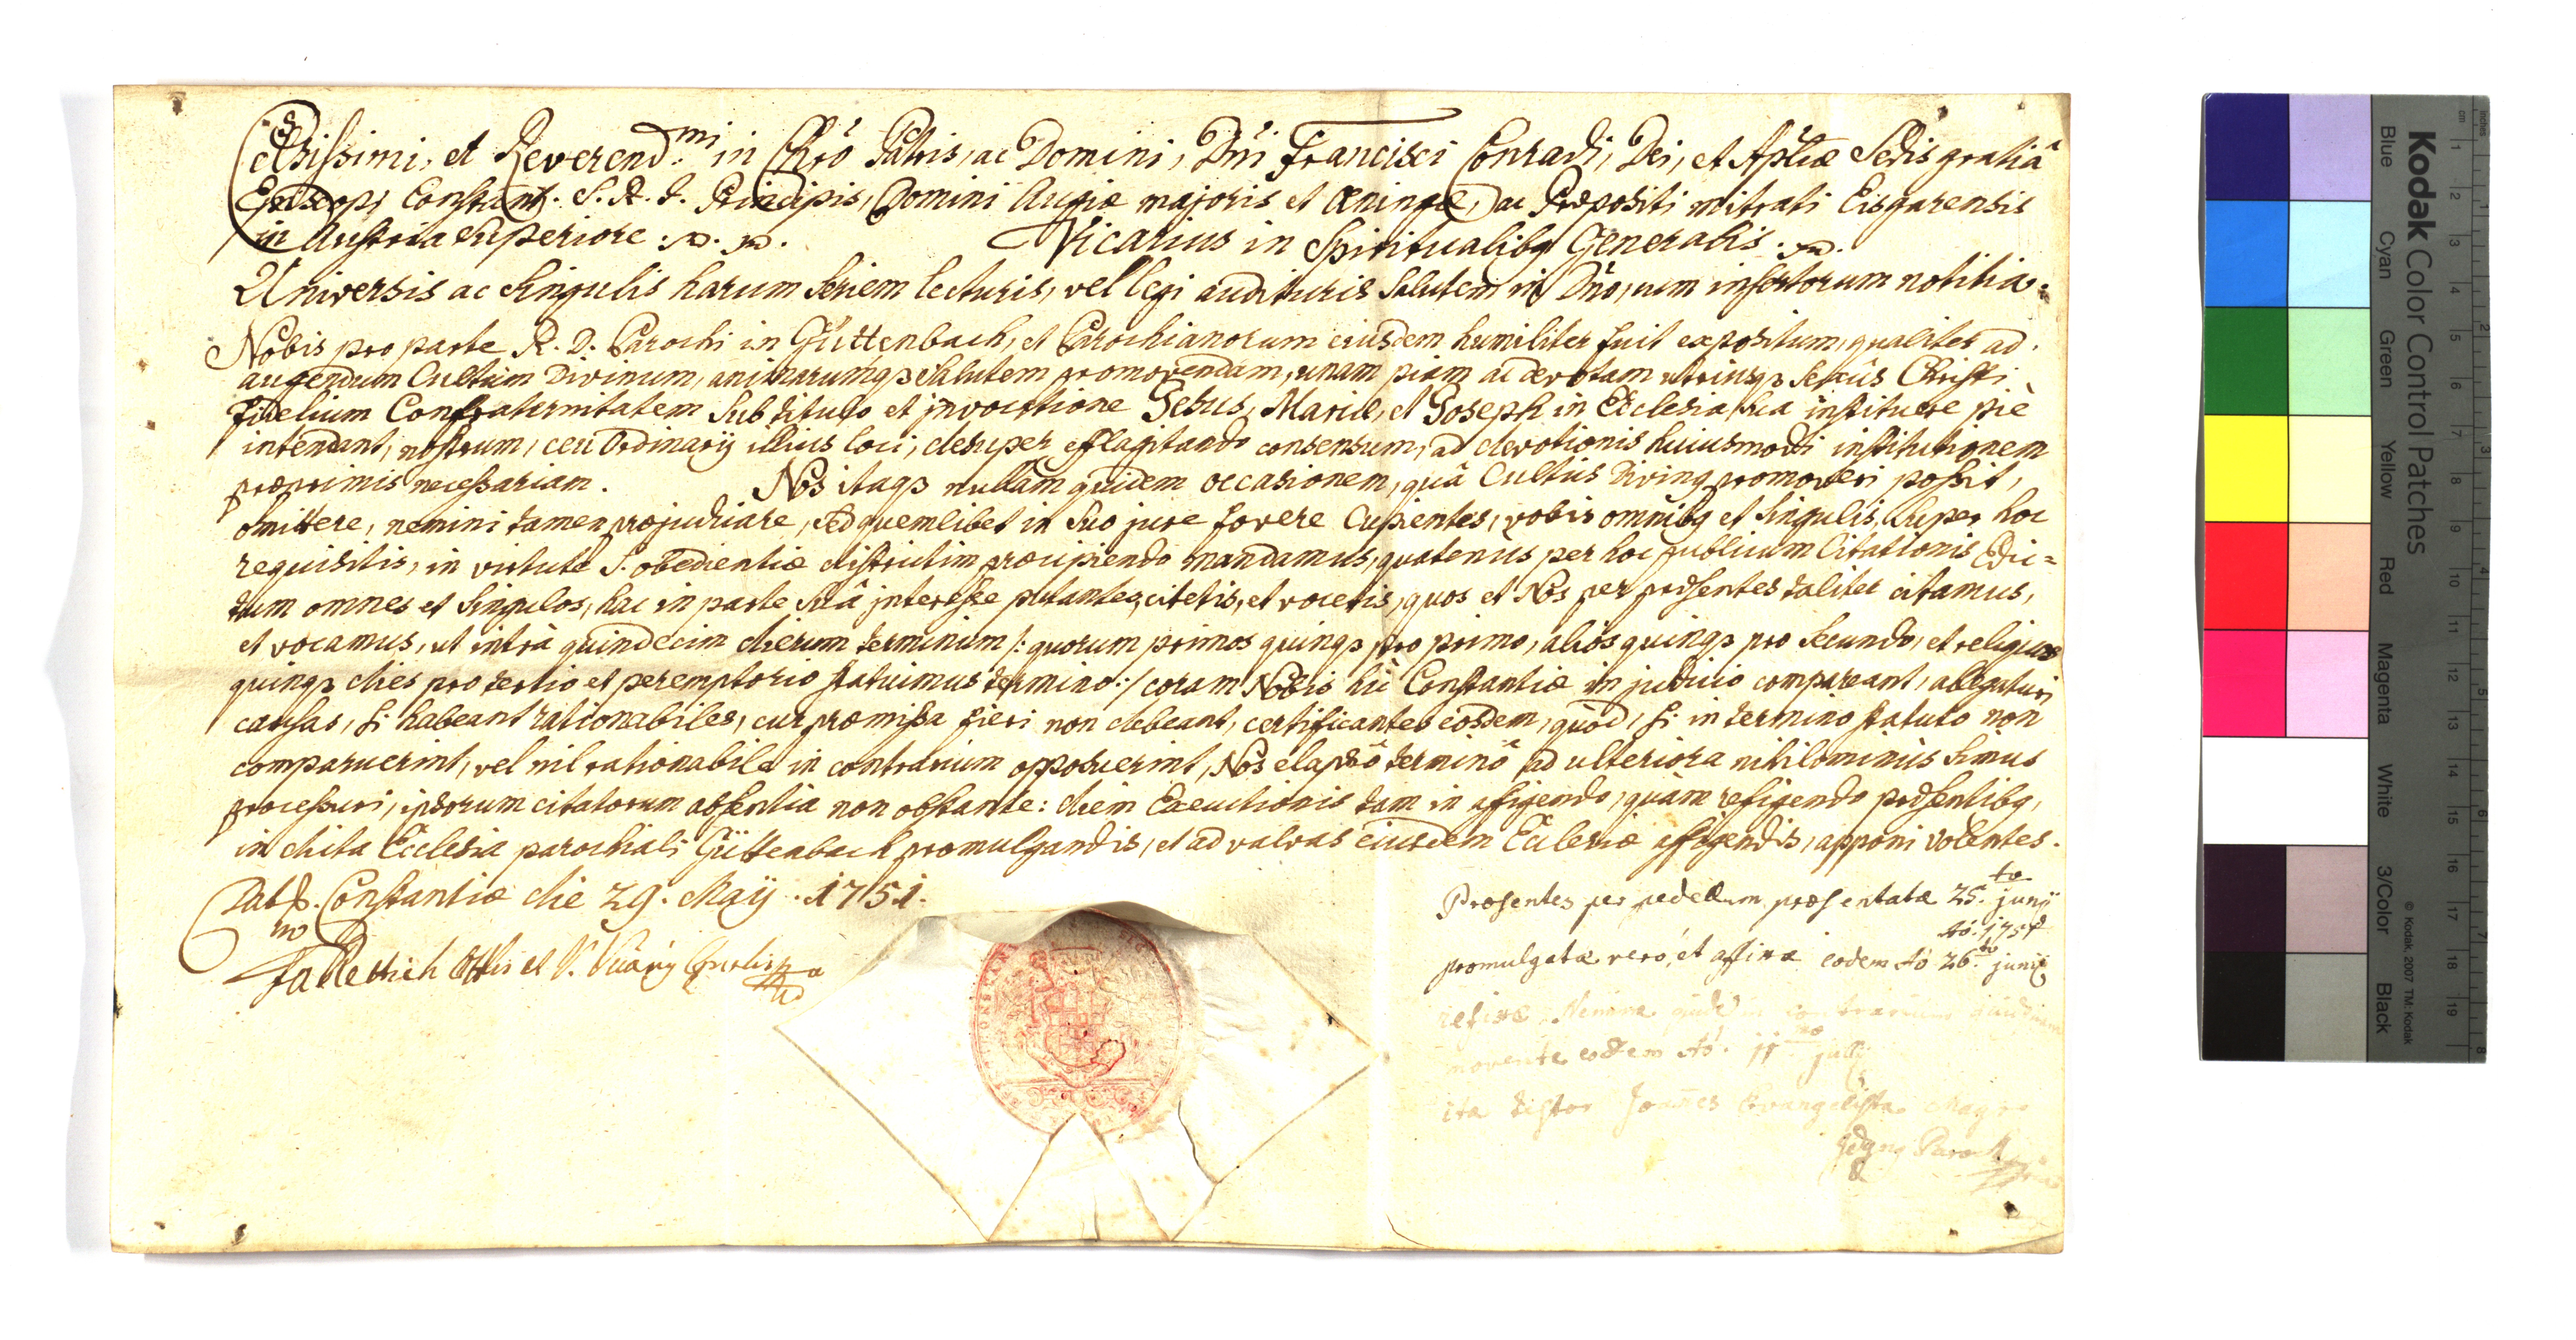 Celsissimi, et Reverend.mi in Chrõ Patris, ac Domini, Dñi Francisci Conradi, Dei, et Aplicæ Sedis gratiâ
Episcopi Constant. S. R. I. Principis, Domini Augiæ majoris et Æningæ, ac Præpositi mitrati Eisgarensis
in Austria Superiore :p. p. Vicarius in Spiritualibq Generalis . p.
Universis ac Singulis harum Seriem lecturis, vel legi audituris Salutem in Dño, cum infertorum notitia.
Nobis pro parte R. D. Parochi in Güttenbach, et Parochianorum eiusdem humiliter fuit expositum, qualiter ad
augendum Cultum Divinum, animarumqз Salutem promovendam, unam piam ac devotam utriusqз Sexûs Christi
fidelium Confraternitatem Sub titulo et jnvocatione Jesus, Mariæ, et Joseph in Ecclesia Sua instituere piè
intendant, nostrum, ceu Ordinarij illius loci, desuper efflagitando consensum, ad devotionis huiusmodi institutionem
præprimis necessariam. Nos itaqз nullam quidem occasionem, quâ Cultus Divinq promoveri possit,
omittere, nemini tamen præjudicare, Sed quemlibet in Suo jure fovere Cupientes, vobis omnibq et Singulis, Super hoc
requisitis, in virtute S. obedientiæ districtim præcipiendo mandamus, quatenus per hoc publicum Citationis Edic=
tum omnes et Singulos, hac in parte Suâ jnteresse putantes, citetis, et vocetis, quos et Nos per præsentes taliter citamus,
et vocamus, ut intra quindecim dierum terminum /: quorum primos quinqз pro primo, alios quinqз pro Secundo, et reliquos
quinqз dies pro tertio et peremptorio statuimus termino :/ coram Nobis hìc Constantiæ in judicio compareant, allegaturi
causas, si habeant rationabiles, cur præmissa fieri non debeant, certificantes eosdem, quòd, si in termino statuto non
comparuerint, vel nil rationabile in contrarium opposuerint, Nos elapsô terminô ad ulteriora nihilominùs Simus
processuri, ipsorum citatorum absentia non obstante: diem Executionis tam in affigendo, quàm refigendo præsentibq,
in dicta Ecclesia parochiali Güttenbach promulgandis, et ad valvas eiusdem Ecclesiæ affigendis, apponi volentes.
Datß. Constantiæ die 29. Maÿ . 1751.
Præsentes per pedellum præsentatæ 25.ta junii
Aõ. 1751
promulgatæ verò, et affixæ eodem Aõ 26.ta junij
refixæ Nemine quidem contrarium
movente eodem Aõ. 11 julij
ita testor Joannes Evangelista Mayr